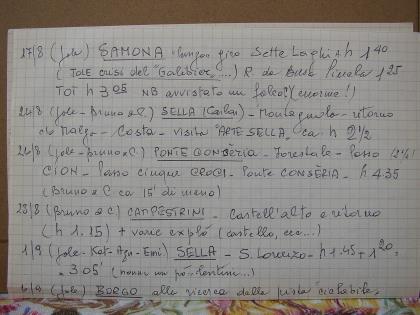 17/8 (Jole) SAMONA - lungo giro Sette Laghi h 1⁴⁰
(TOLE crusi del "Galibier",...) R. da Busa Pinela 1²⁵
TOT h 3 05 NB avvistato un falco? (enorme!)
24/8 (Jole-Bruno e C.) SELLA (Carlai) - Montagnola - ritorno
da Malga - Costa - visita "ARTE SELLA" ca h 2½
26/8 (Jole-Bruno e C.) PONTE CONSÈRIA - Forestale - Passo (2¼)
CION - Passo cinque CROCI - Ponte CONSERIA - h 4 35
(Bruno e C ca 15' di meno)
28/8 (Bruno e C) CAMPESTRINI - Castell'alto e ritorno
(h 1.15) + varie explò (castello, ecc...)
1/9 (Jole-Kat-Azu-Emi) SELLA - S. Lorenzo - h 1.45 + 1²⁰
= 3 05' (nonni un po' lentini...)
6/9 (Jole) BORGO alla ricerca della pista ciclabile,